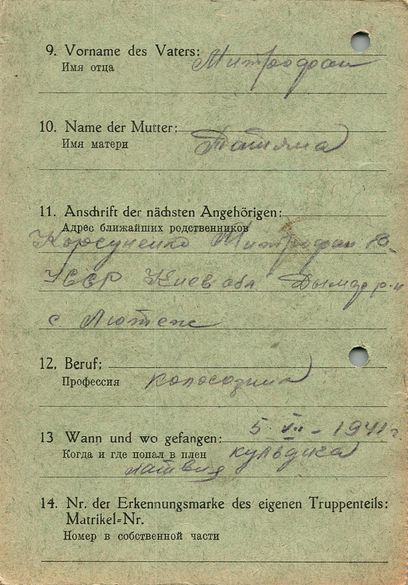 9. Vorname des Vaters: Митрофан
Имя отца
10. Name der Mutter: Татяна
Имя матери
11. Anschrift der nächsten Angehörigen:
Адрес ближайших родственников
Корсуненко Митрофан
УССР Киев обл. Дымар р-н
с Лютеж
12. Beruf:
Профессия колхозник
13 Wann und wo gefangen: 5 VII - 1941 г
Когда и где попал в плен кульдика
латвия
14. Nr. der Erkennungsmarke des eigenen Truppenteils:
Matrikel=Nr.
Номер в собственной части